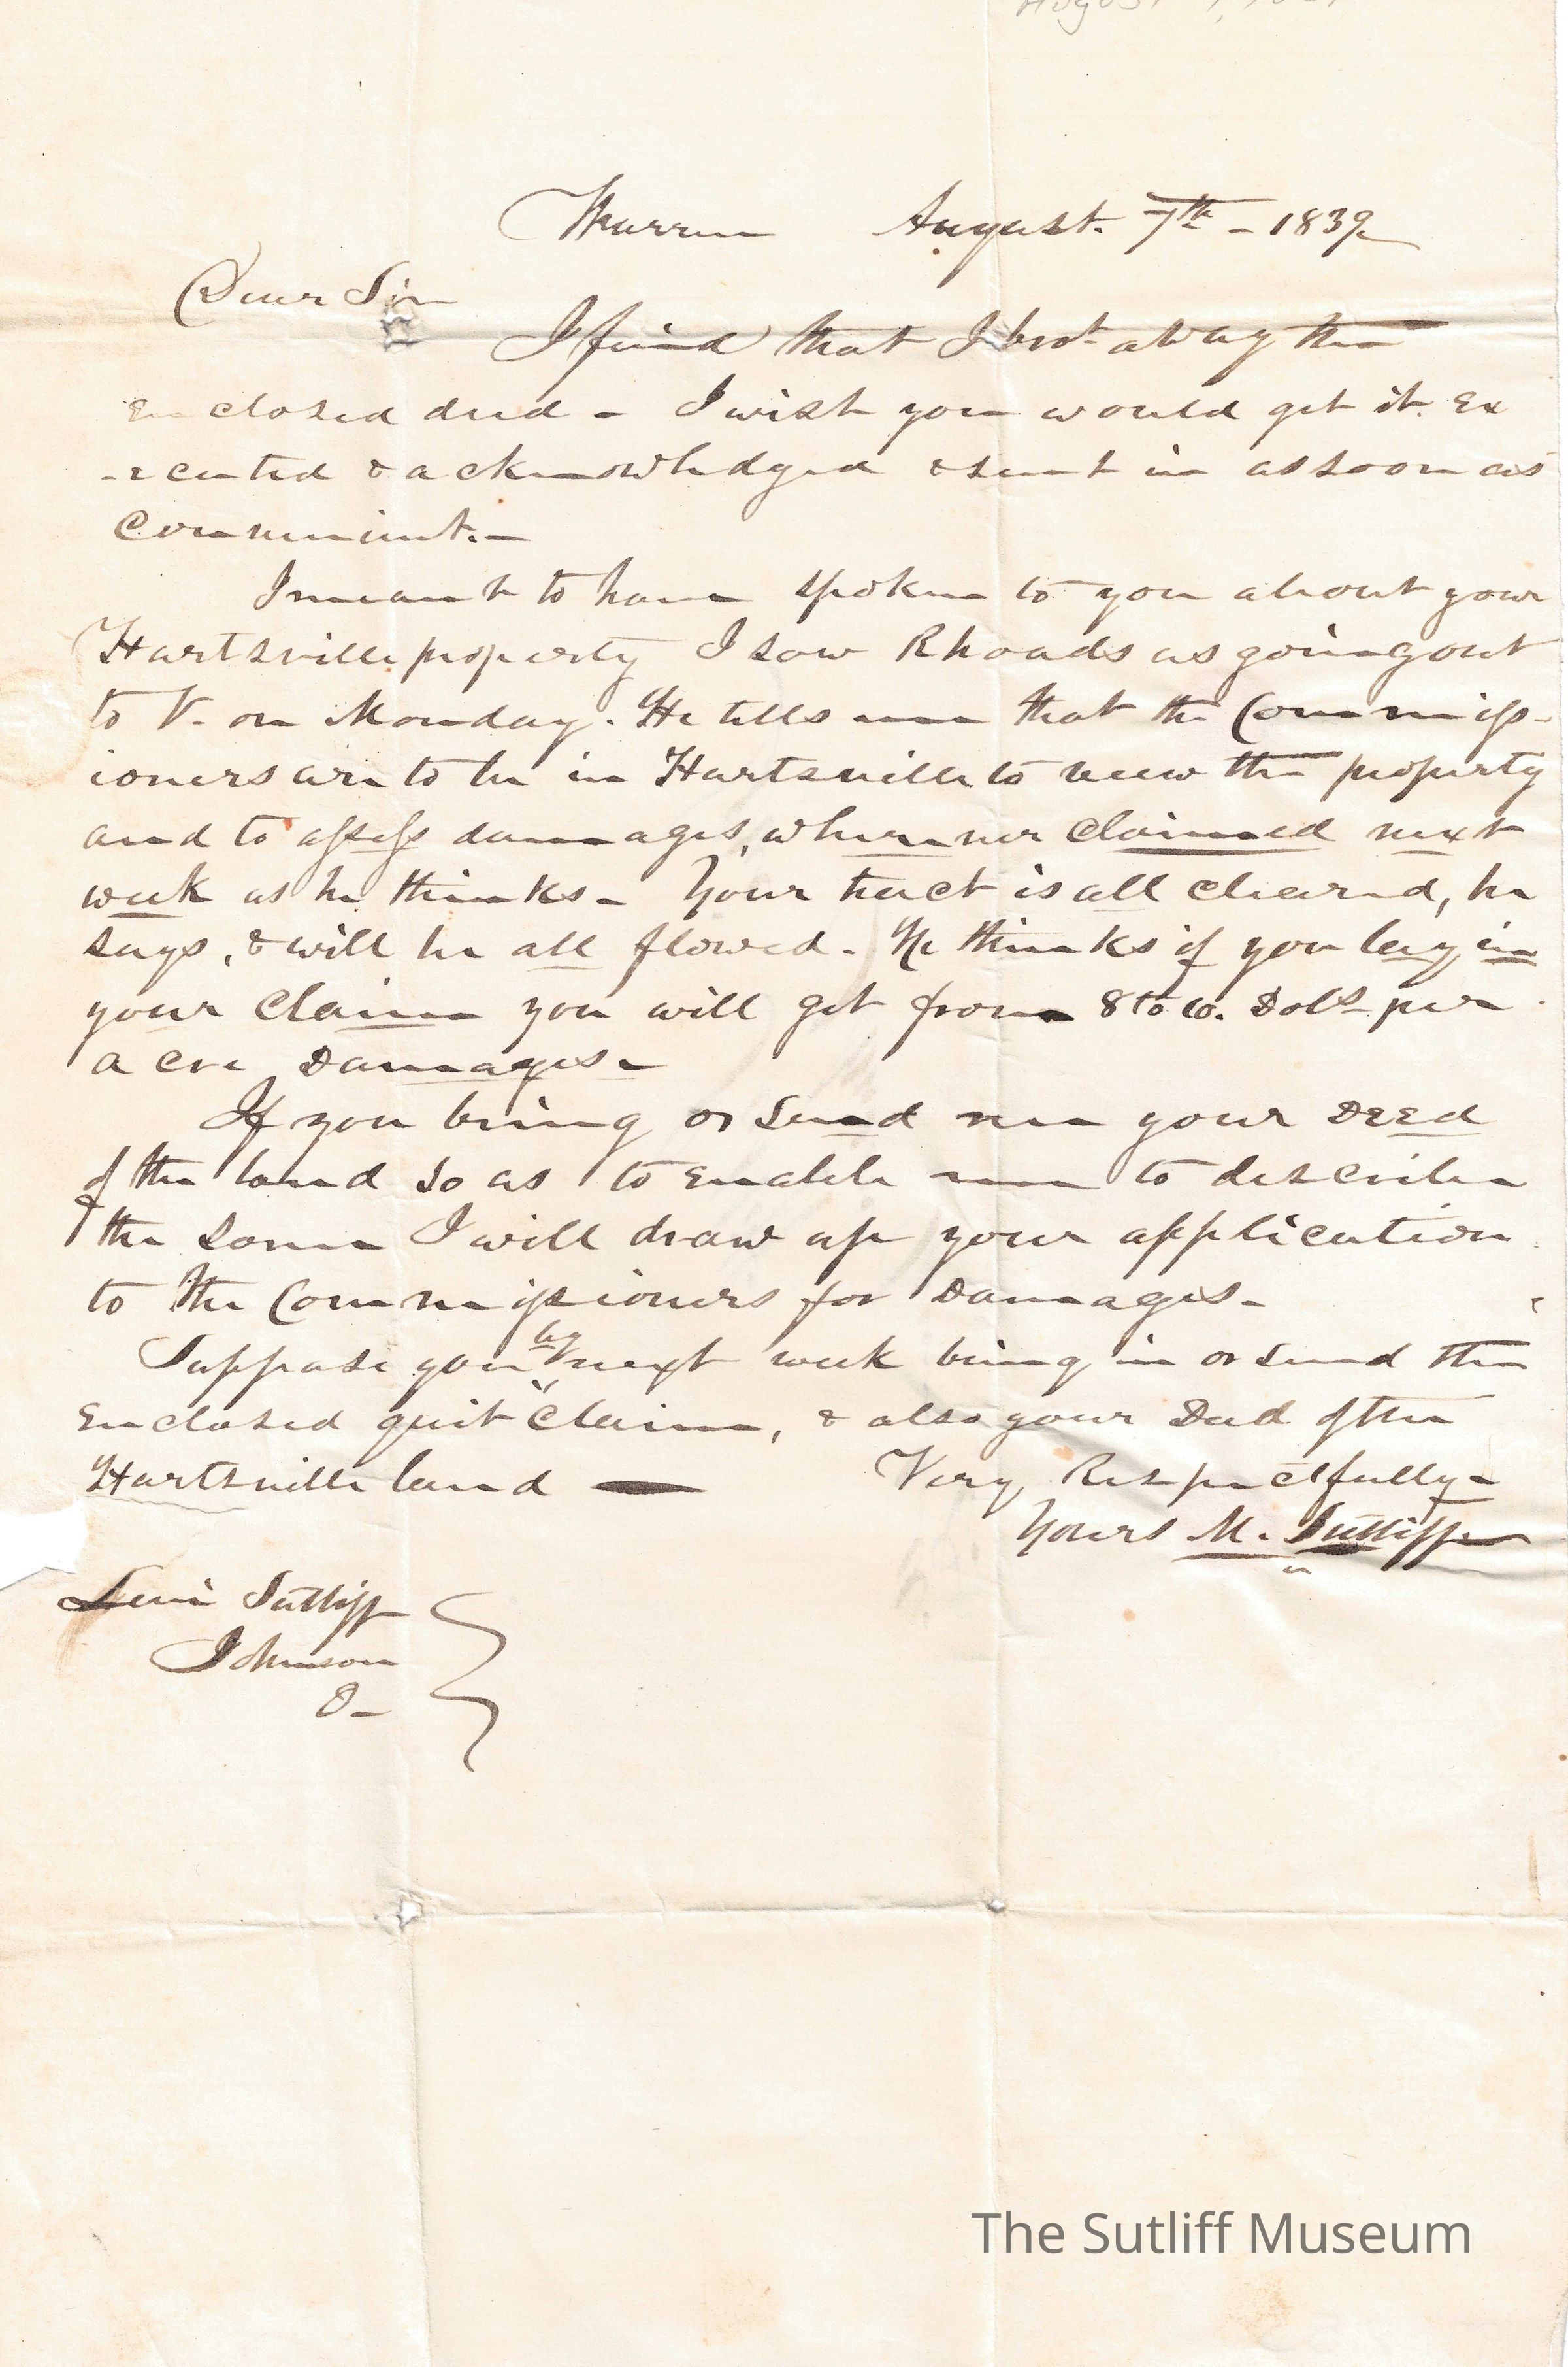 August 7, 18
Warren August. 7th - 1839
Dear Sir
I find that I brot away the
enclosed deed - I wish you would get it. Ex
-ecuted & acknowledged & sent in as soon as
convenient. -
I meant to have spoken to you about your
Hartsville property I saw Rhoads as going out
to V. on Monday. He tells me that the Commiss-
ioners are to be in Hartsville to view the property
and to assess damages, wherever claimed next
week as he thinks - Your tract is all cleared, he
says, & will be all flowed - He thinks if you lay in
your claim you will get from 8 to 10. Dols per
acre Damages -
If you bring or send me your Deed
of the land so as to enable me to describe
the same I will draw up your application
to the Commissioners for Damages -
by
Suppose you next week bring in or send the
enclosed quit claim, & also your Deed of the
Hartsville land — Very Respectfully -
Yours M. Sutliff
Levi Sutliff
Johnson
O -
The Sutliff Museum